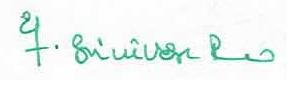 Y. Srinivasa Rao